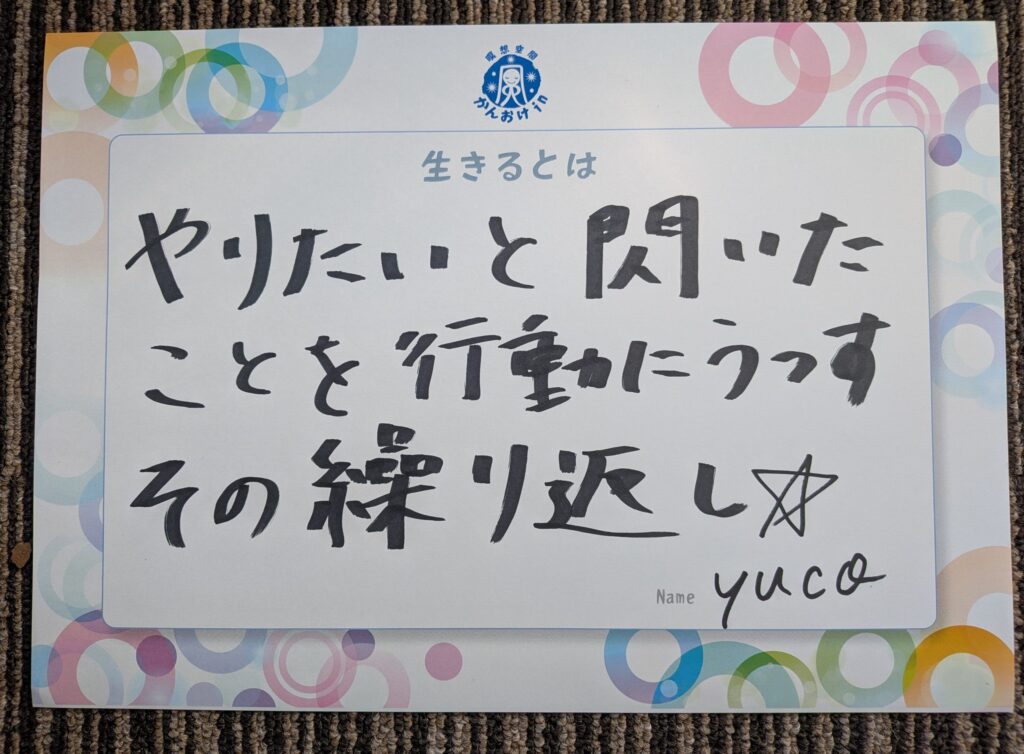 瞑想空間
かんおけin
生きるとは
やりたいと閃いた
ことを行動にうつす
その繰り返し☆
Name yuco